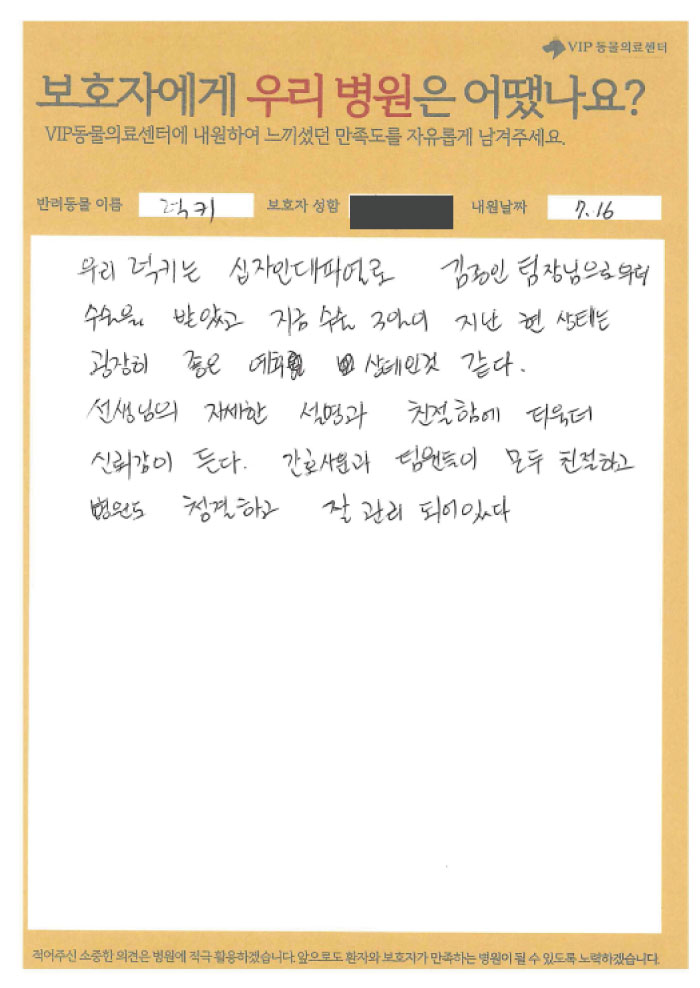 VIP 동물의료센터
보호자에게 우리 병원은 어땠나요?
VIP동물의료센터에 내원하여 느끼셨던 만족도를 자유롭게 남겨주세요.
반려동물 이름 럭키 보호자 성함 내원날짜 7.16
우리 럭키는 십자인대파열로 팀장님으로부터
수술을 받았고 지금 수술 3일이 지난 현 상태는
굉장히 좋은 상태인것 같다.
선생님의 자세한 설명과 친절함에 더욱더
신뢰감이 든다. 간호사분과 팀원들이 모두 친절하고
병원도 청결하고 잘 관리 되어있다
적어주신 소중한 의견은 병원에 적극 활용하겠습니다. 앞으로도 환자와 보호자가 만족하는 병원이 될 수 있도록 노력하겠습니다.